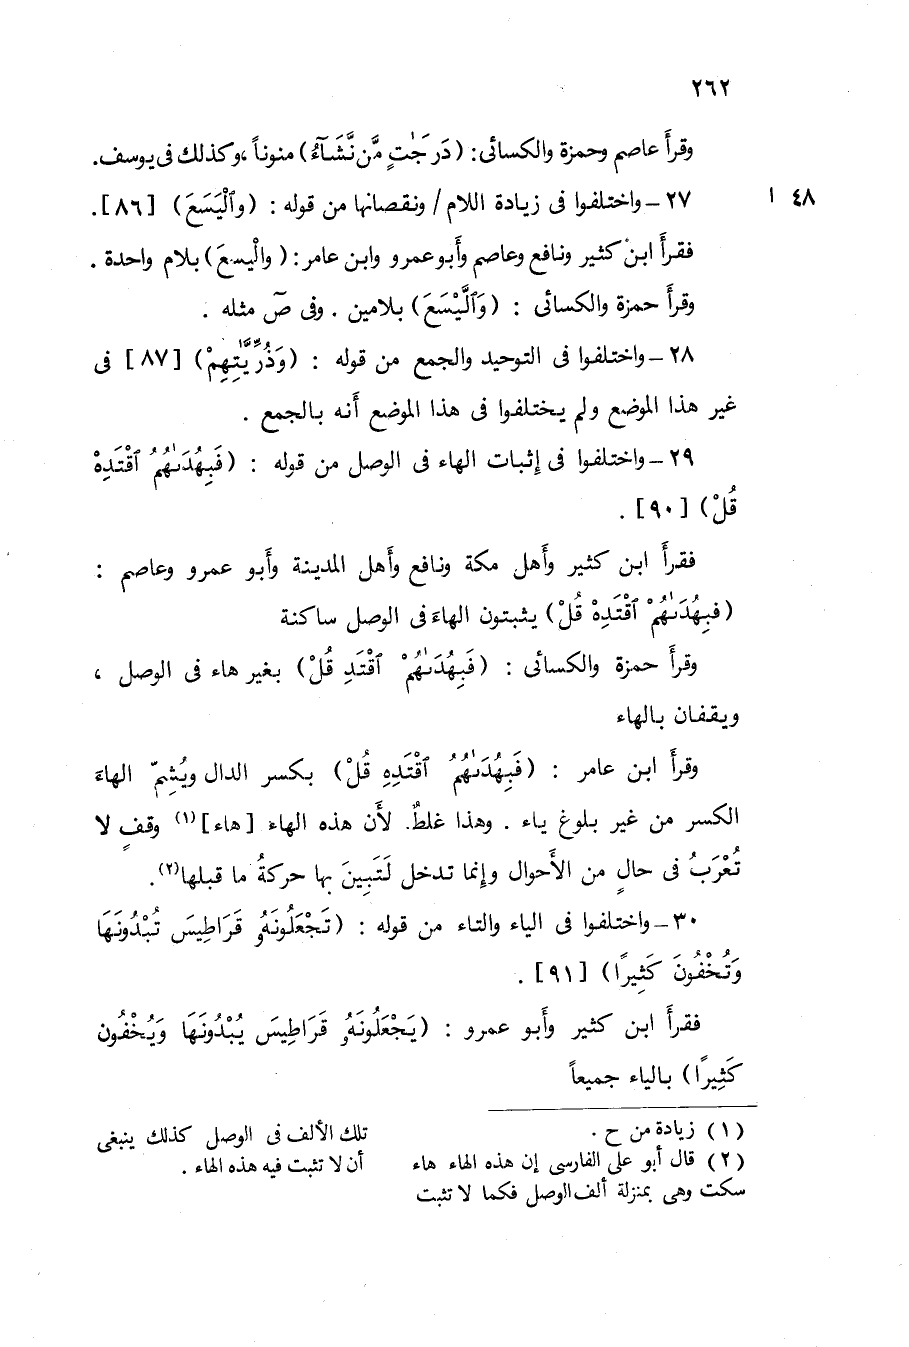 ٢٦٢
وقرأ عاصم وحمزة والكسائى: (دَرَجَٰتٍ مَّن نَّشَآءُ) منوناً ،وكذلك فى يوسف.
٢٧ ــ واختلفوا فى زيادة اللام / ونقصانها من قوله : (وٱلْيَسَعَ) [٨٦]. ٤٨ ا
فقرأ ابن كثير ونافع وعاصم وأبو عمرو وابن عامر: ( والْيسعَ) بلام واحدة .
وقرأ حمزة والكسائى : (وَٱلَّيْسَعَ) بلامين . وفى صٓ مثله .
٢٨ ــ واختلفوا فى التوحيد والجمع من قوله : (وَذُرِّيَّٰتِهِمْ) [٨٧] فى
غير هذا الموضع ولم يختلفوا فى هذا الموضع أنه بالجمع .
٢٩ ــ واختلفوا فى إثبات الهاء فى الوصل من قوله : (فَبِهُدَىٰهُمُ ٱقْتَدِهْ
قُلْ) [٩٠] .
فقرأ ابن كثير وأهل مكة ونافع وأهل المدينة وأبو عمرو وعاصم :
(فبِهُدَىٰهُمْ ٱقْتَدِهْ قُلْ) يثبتون الهاءَ فى الوصل ساكنة
وقرأ حمزة والكسائى : (فَبِهُدَىٰهُمْ ٱقْتَدِ قُلْ) بغير هاء فى الوصل ،
ويقفان بالهاء
وقرأ ابن عامر : (فَبِهُدَىٰهُمُ ٱقْتَدِهِ قُلْ) بكسر الدال ويُشِمّ الهاءَ
الكسر من غير بلوغ ياء . وهذا غلطٌ. لأَن هذه الهاء [هاء](١) وقفٍ لا
تُعْرَبُ فى حالٍ من الأَحوال وإنما تدخل لَتَبِينَ بها حركةُ ما قبلها(٢).
٣٠ ــ واختلفوا فى الياء والتاء من قوله : (تَجْعَلُونَهُۥ قَرَاطِيسَ تُبْدُونَهَا
وَتُخْفُونَ كَثِيرًا) [٩١] .
فقرأ ابن كثير وأبو عمرو : (يَجْعَلُونَهُۥ قَرَاطِيسَ يُبْدُونَهَا وَيُخْفُون
كَثِيرًا) بالياء جميعاً
(١) زيادة من ح .
(٢) قال أبو على الفارسى إن هذه الهاء هاء
سكت وهى بمنزلة ألف الوصل فكما لا تثبت
تلك الألف فى الوصل كذلك ينبغى
أن لا تثبت فيه هذه الهاء .